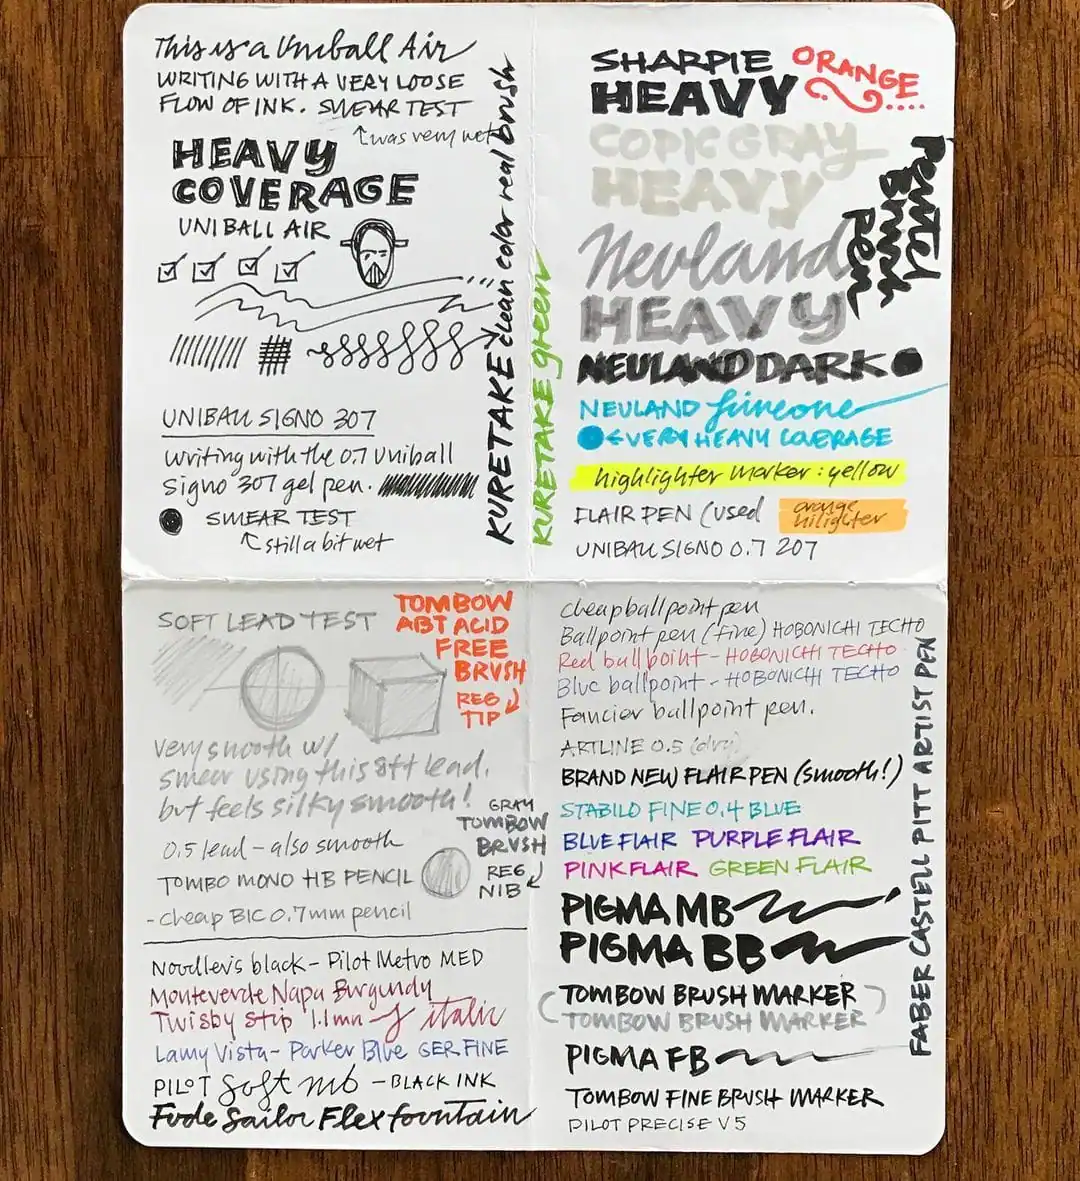 This is a Uniball Air
WRITING WITH A VERY LOOSE
FLOW OF INK. SMEAR TEST
was very wet
HEAVY
COVERAGE
UNIBALL AIR
KURETAKE clean color real brush
KURETAKE green
UNIBALL SIGNO 307
writing with the 0.7 Uniball
Signo 307 gel pen.
SMEAR TEST
still a bit wet
SHARPIE
HEAVY
ORANGE
COPIC GRAY
HEAVY
Pentel
Brush
Pen
Neuland
HEAVY
NEULAND DARK
NEULAND fineone
←VERY HEAVY COVERAGE
highlighter marker: yellow
FLAIR PEN (used
orange
hilighter
UNIBALL SIGNO 0.7 207
SOFT LEAD TEST
TOMBOW
ABT ACID
FREE
BRUSH
REG
TIP
very smooth w/
smear using this soft lead.
but feels silky smooth!
0.5 lead – also smooth
TOMBO MONO HB PENCIL
- cheap BIC 0.7mm pencil
GRAY
TOMBOW
BRUSH
REG
NIB
Noodler's black – Pilot Metro MED
Monteverde Napa Burgundy
Twisby Stip 1.1mm italic
Lamy Vista – Parker Blue GER FINE
PILOT Soft mb – BLACK INK
Fude Sailor Flex fountain
cheap ballpoint pen
Ballpoint pen (fine) HOBONICHI TECHO
Red ballpoint – HOBONICHI TECHO
Blue ballpoint – HOBONICHI TECHO
Fancier ballpoint pen.
ARTLINE 0.5 (dry)
BRAND NEW FLAIR PEN (smooth!)
STABILO FINE 0.4 BLUE
BLUE FLAIR PURPLE FLAIR
PINK FLAIR GREEN FLAIR
PIGMA MB
PIGMA BB
TOMBOW BRUSH MARKER
TOMBOW BRUSH MARKER
PIGMA FB
TOMBOW FINE BRUSH MARKER
PILOT PRECISE V5
FABER CASTELL PITT ARTIST PEN